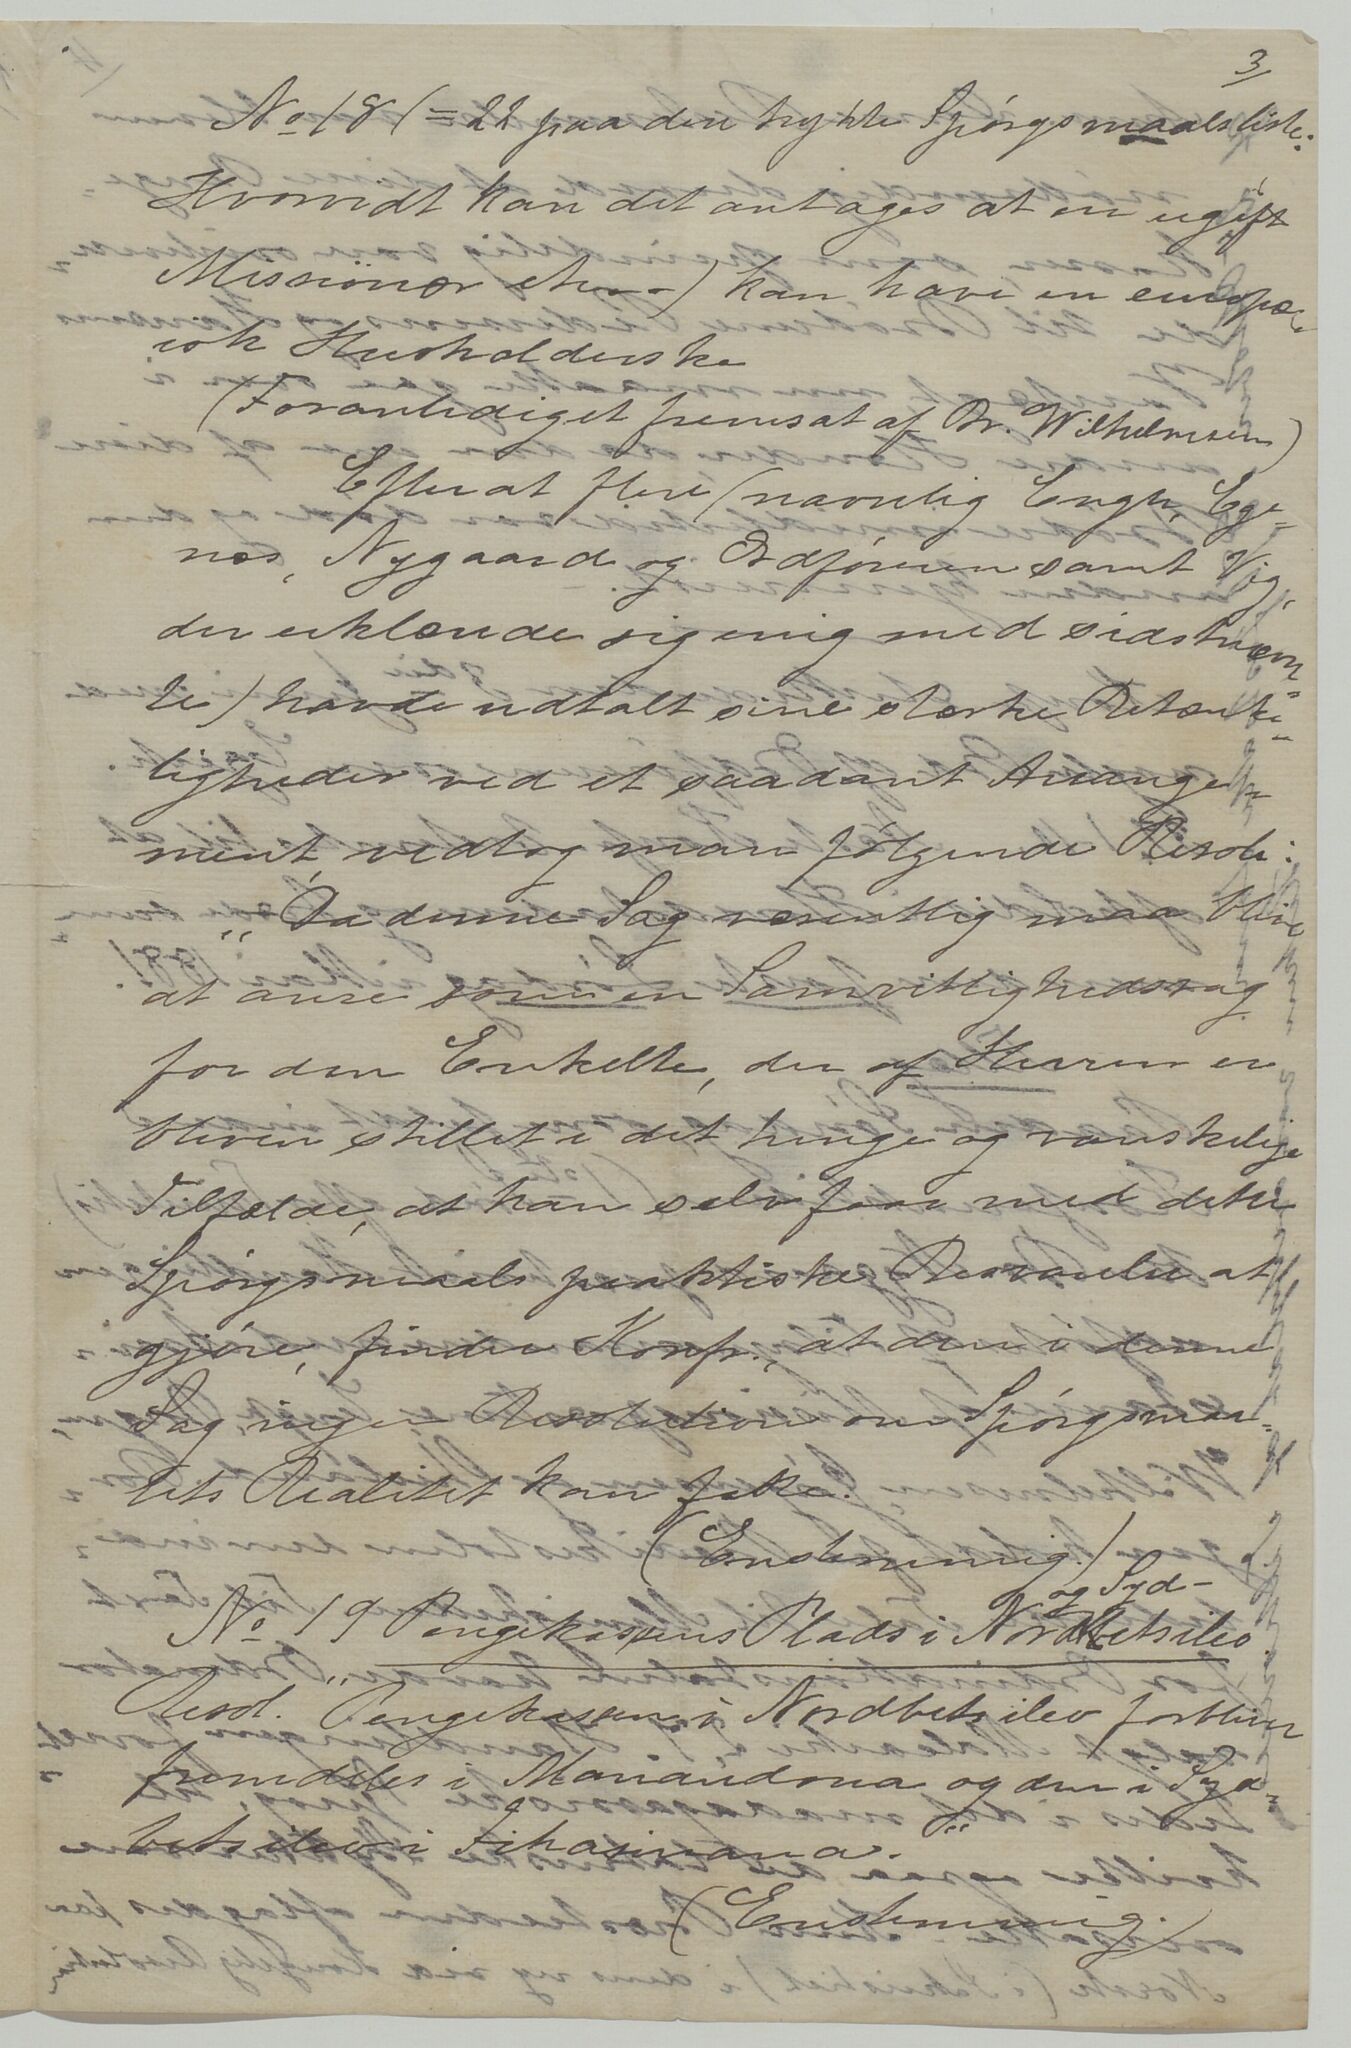 3/
No 18 (= 22 paa den trykte Spørgsmaalsliste:
Hvorvidt kan det antages at en ugift
Missionær etc. --) kan have en europæ-
isk Husholderske
(Foranlediget fremsat af Br. Wilhelmsen)
Efterat flere (navnlig Engh, Ege-
næs, Nygaard og Ordføreren samt Vig,
der erklærede sig enig med sidstnævn-
te) havde udtalt sine stærke Betænke-
ligheder ved et saadant Arrange-
ment, vedtog man følgende Resol:
"Da denne Sag væsentlig maa blive
at anse som en Samvittighedssag
for den Enkelte, der af Herren er
bleven stillet i det tunge og vanskelige
Tilfælde, at han selv faar med dette
Spørgsmaals praktiske Besvarelse at
gjøre, finder Konf., at den i denne
Sag ingen Resolution om Spørgsmaa-
lets Realitet kan fatte.
(Enstemmig.)
og Syd-
No 19 Pengekassens Plads i Nordbetsileo
Resol. "Pengekassen i Nordbetsileo forbliver
fremdeles i Manandona og den i Syd-
betsileo i Fihasinana."
(Enstemmig.)